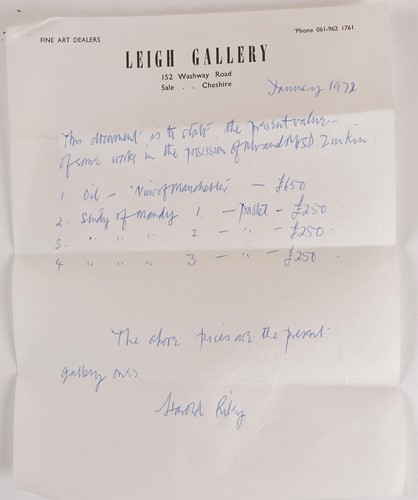 FINE ART DEALERS
'Phone 061-962 1761
LEIGH GALLERY
152 Washway Road
Sale . . Cheshire
January 1972
This document is to state the present value
of some works in the possession of Mr and Mrs D. Zinkin.
1. Oil – 'View of Manchester' – £650
2. Study of Mandy 1 – pastel – £250
3. " " " 2 – " – £250
4 " " " 3 – " – £250
The above prices are the present
gallery ones.
Harold Riley